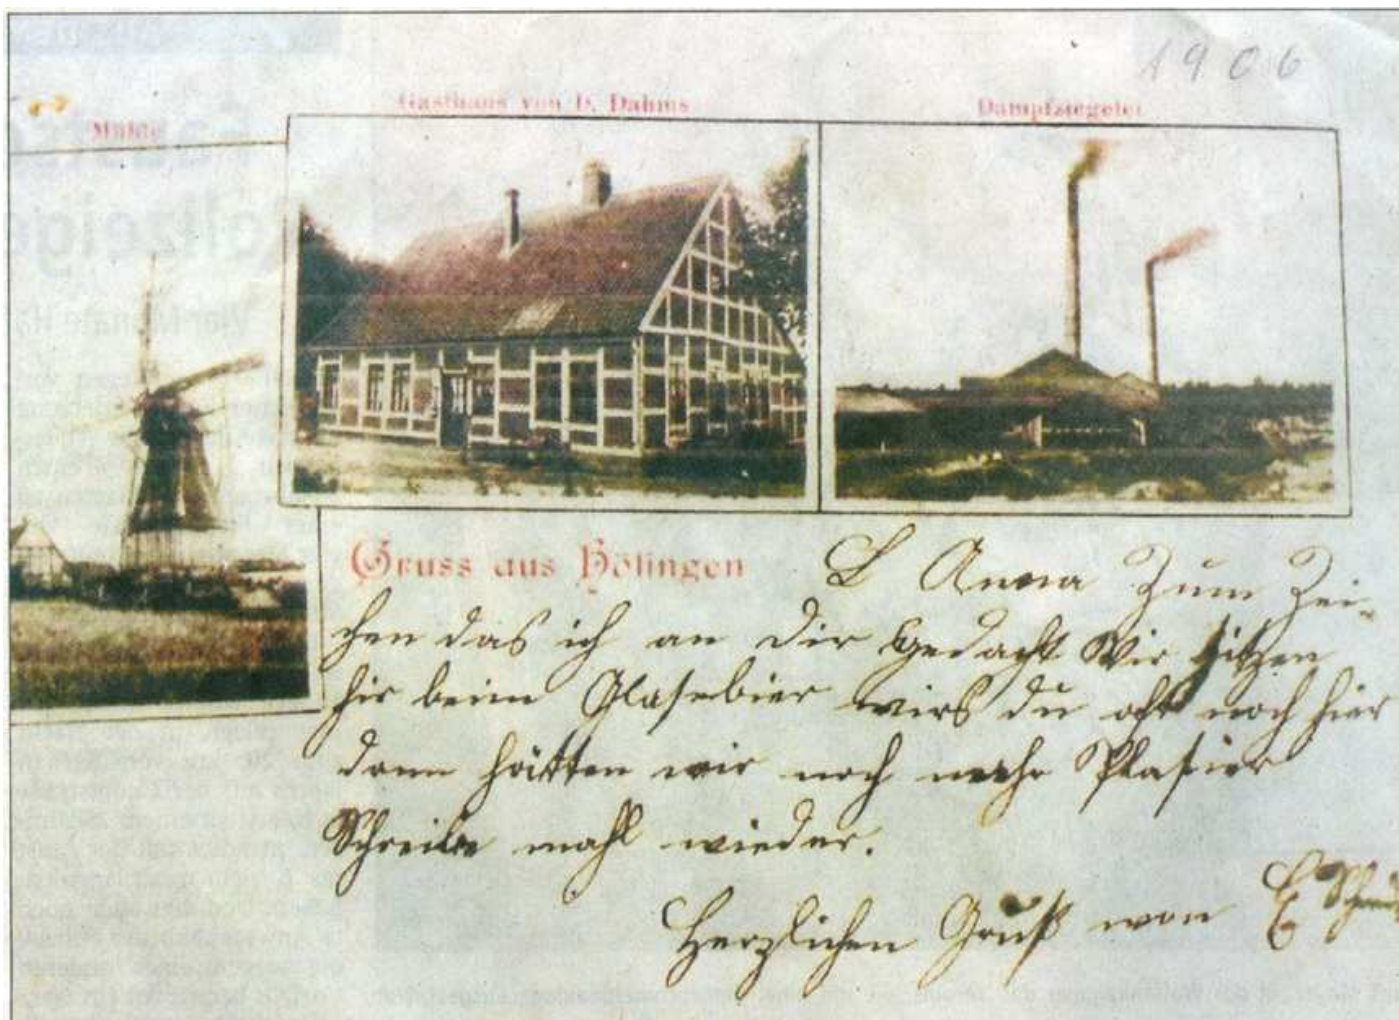 1906
Mühle
Gasthaus von D. Dahms
Dampfziegelei
Gruss aus Hölingen
L Anna Zum Zei-
chen das ich an dir gedacht Wir sitzen
hir beim Glasebier wirst du oft noch hier
dann hätten wir noch mehr Plasier
Schreibe mahl wieder.
Herzlichen Gruß von E